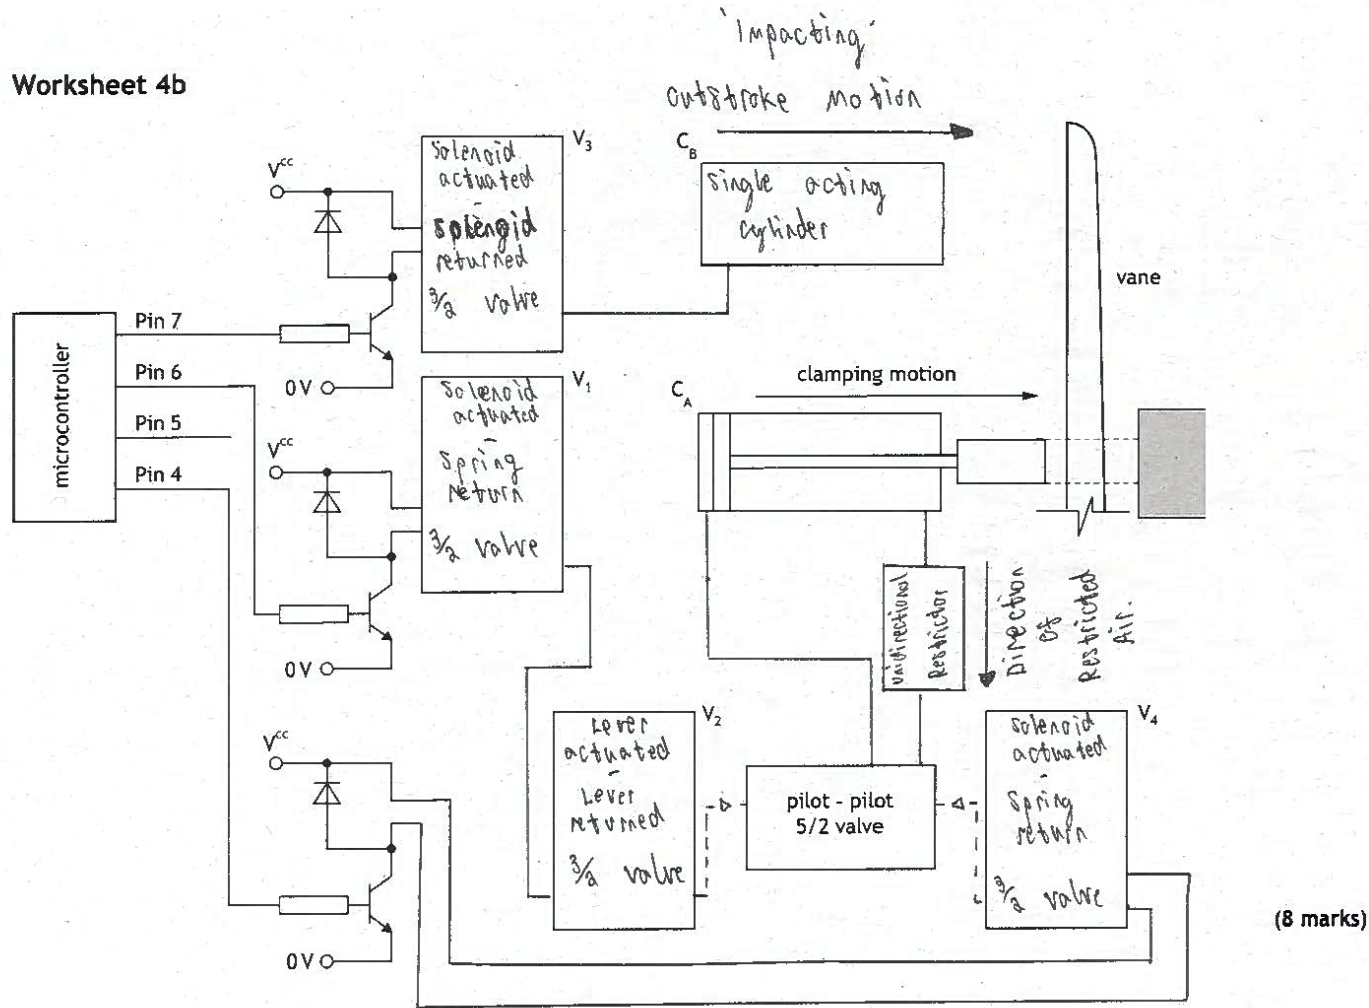 'Impacting'
Outstroke Motion
Worksheet 4b
V3
Solenoid
actuated
-
solenoid
returned
3/2 valve
Vcc
CB
Single acting
cylinder
vane
Pin 7
microcontroller
Pin 6
0V
Pin 5
Pin 4
V1
Solenoid
actuated
-
Spring
return
3/2 valve
CA
clamping motion
Vcc
Unidirectional
Restrictor
Direction
of
Restricted
Air.
0V
V2
Lever
actuated
-
Lever
returned
3/2 valve
pilot - pilot
5/2 valve
V4
Solenoid
actuated
-
Spring
return
3/2 valve
Vcc
0V
(8 marks)